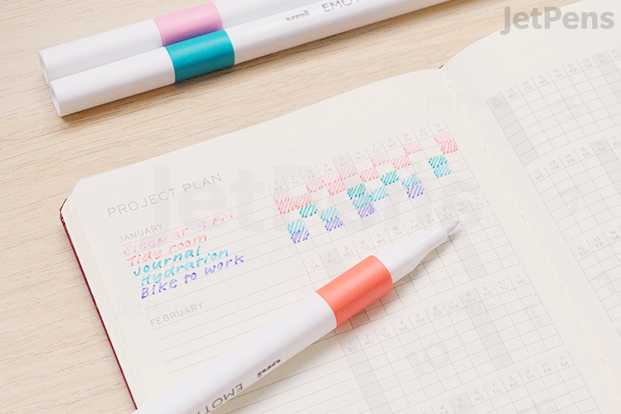 JetPens
uni EMOTT
PROJECT PLAN
JANUARY
Sleep at 9 PM
Tidy room
Journal
Hydration
Bike to work
FEBRUARY
uni EMOTT